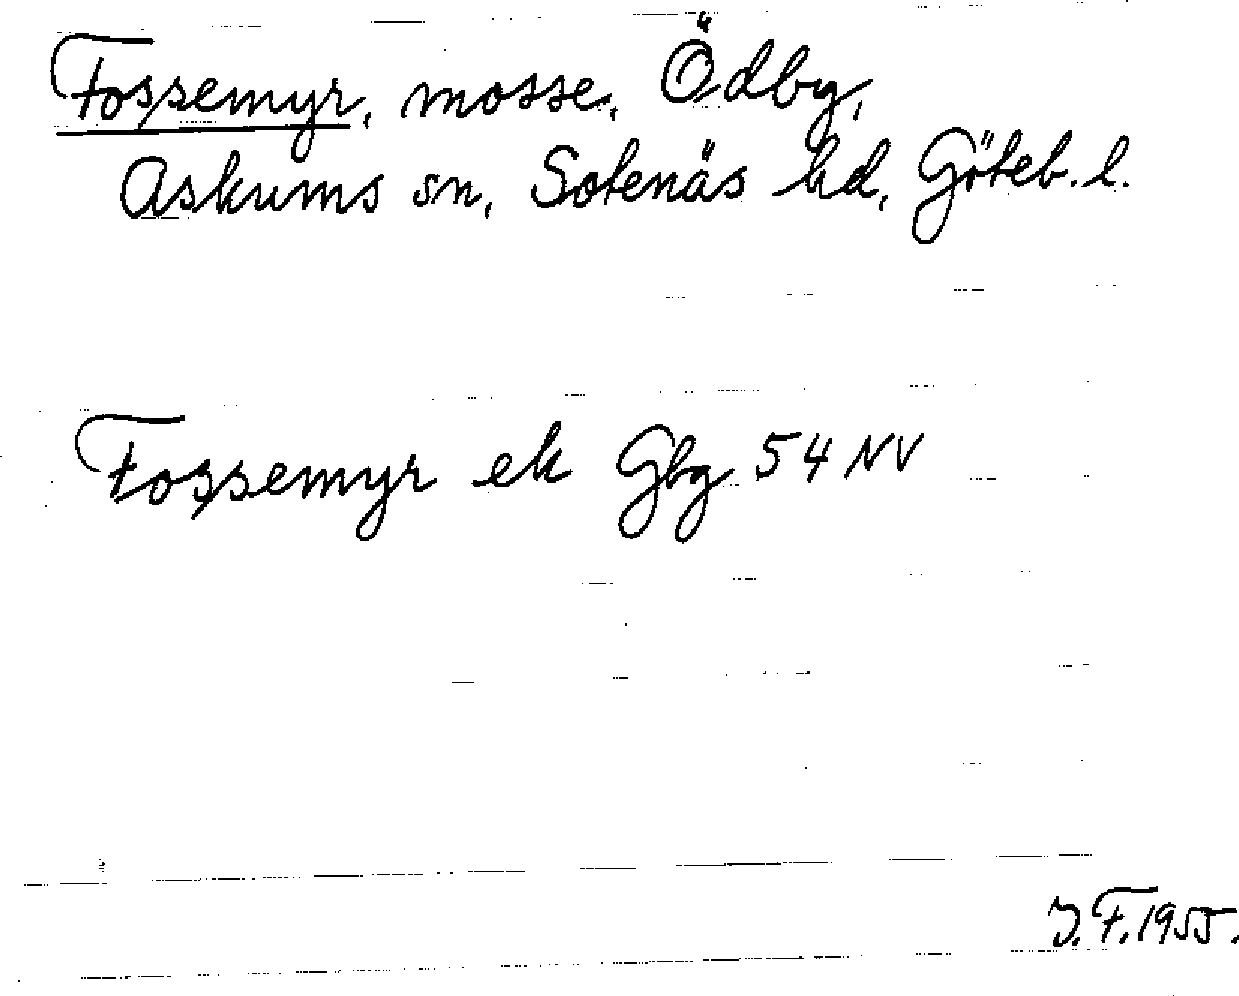 Fossemyr, mosse, Ödby,
Askums sn, Sotenäs hd, Göteb. l.
Fossemyr ek Gbg 54 NV
J. F. 1955.